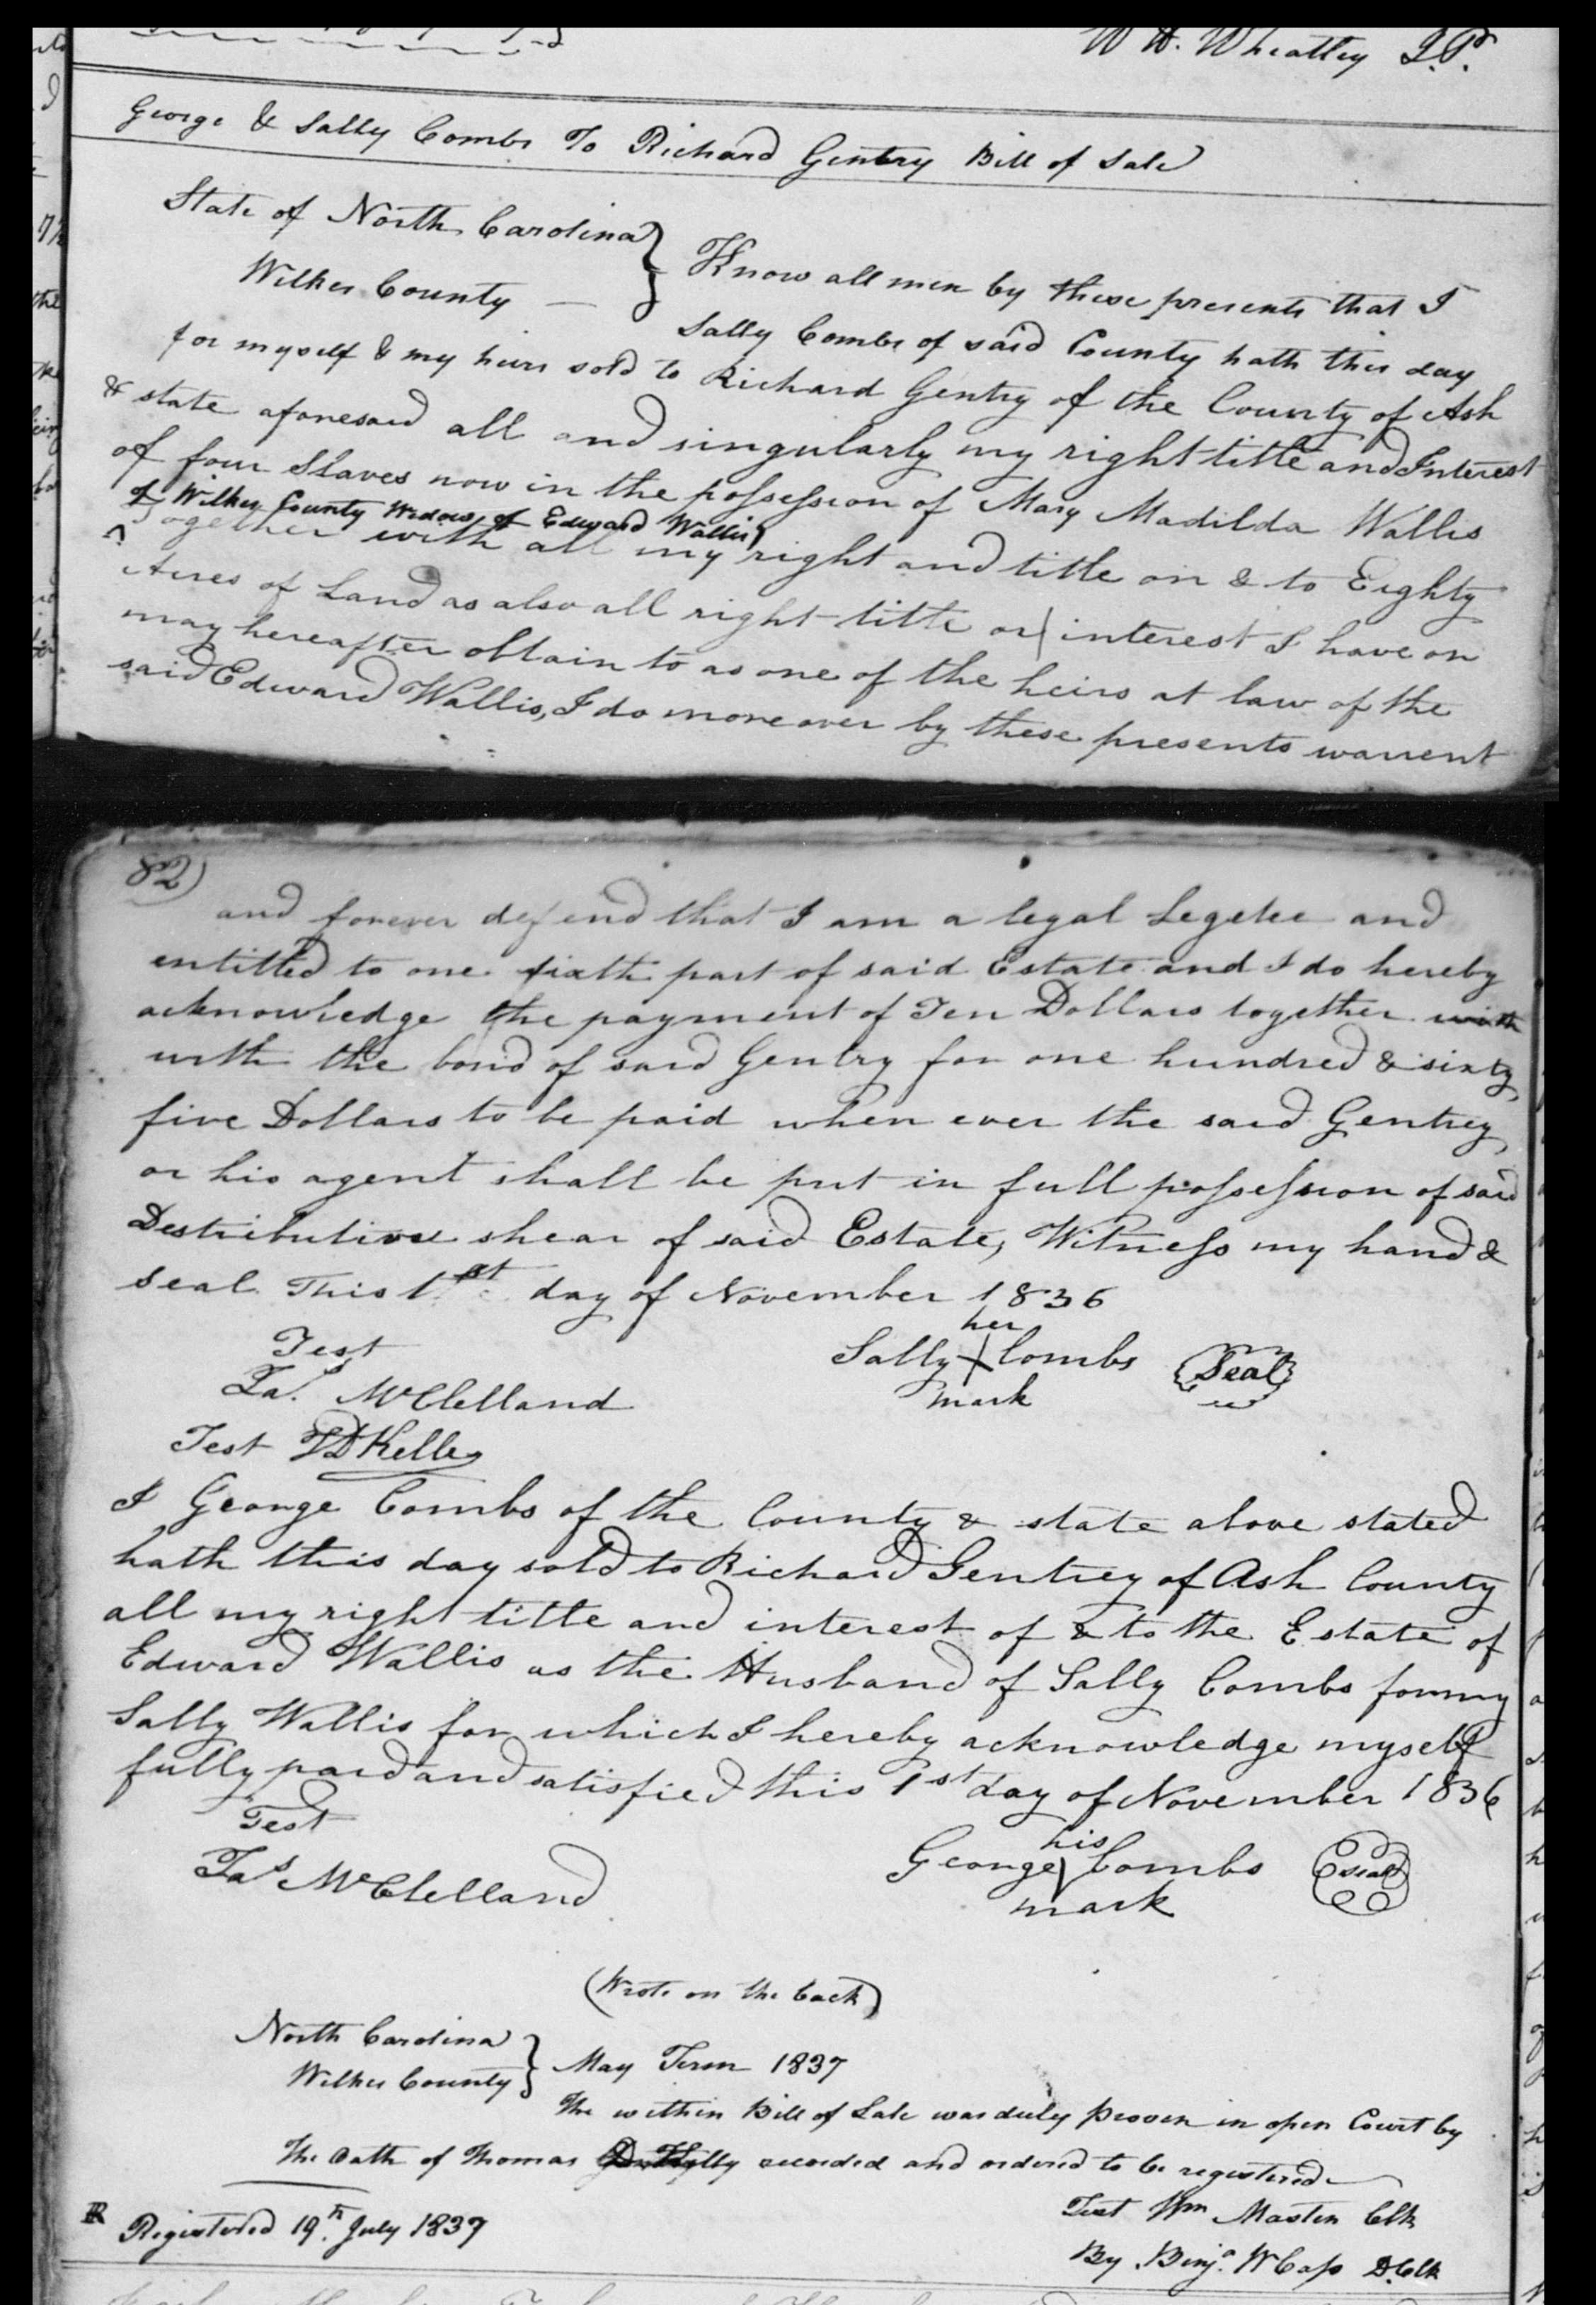 W W. Wheatley J.P.
George & Sally Combs To Richard Gentry Bill of Sale
State of North Carolina
Wilkes County —
Know all men by these presents that I
Sally Combs of said County hath this day
for myself & my heirs sold to Richard Gentry of the County of Ash
& state aforesaid all and singularly my right title and Interest
of four Slaves now in the possession of Mary Madilda Wallis
of Wilkes County Widow of Edward Wallis
^ Together with all my right and title on & to Eighty
Acres of Land as also all right title or interest I have on
may hereafter obtain to as one of the heirs at law of the
said Edward Wallis, I do moreover by these presents warrent
82)
and forever defend that I am a legal Legetee and
entitled to one sixth part of said Estate and I do hereby
acknowledge the payment of Ten Dollars together with
with the bond of said Gentry for one hundred & sixty
five Dollars to be paid when ever the said Gentrey
or his agent shall be put in full possession of said
Destributive shear of said Estate, Witness my hand &
seal This 1st day of November 1836
Test
Jas. McClelland
Test TD Kelley
her
Sally X Combs Seal
mark
I George Combs of the County & state above stated
hath this day sold to Richard Gentrey of Ash County
all my right title and interest of & to the Estate of
Edward Wallis as the Husband of Sally Combs formy
Sally Wallis for which I hereby acknowledge myself
fully paid and satisfied this 1st day of November 1836
Test
Jas McClelland
his
George Combs seal
mark
(Wrote on the back)
North Carolina
Wilkes County
May Term 1837
The within Bill of Sale was duly proven in open Court by
The Oath of Thomas Kelly recorded and ordered to be registered
Test Wm Masten Clk
By Benja. W Cass D.Clk
R Registered 19th July 1837